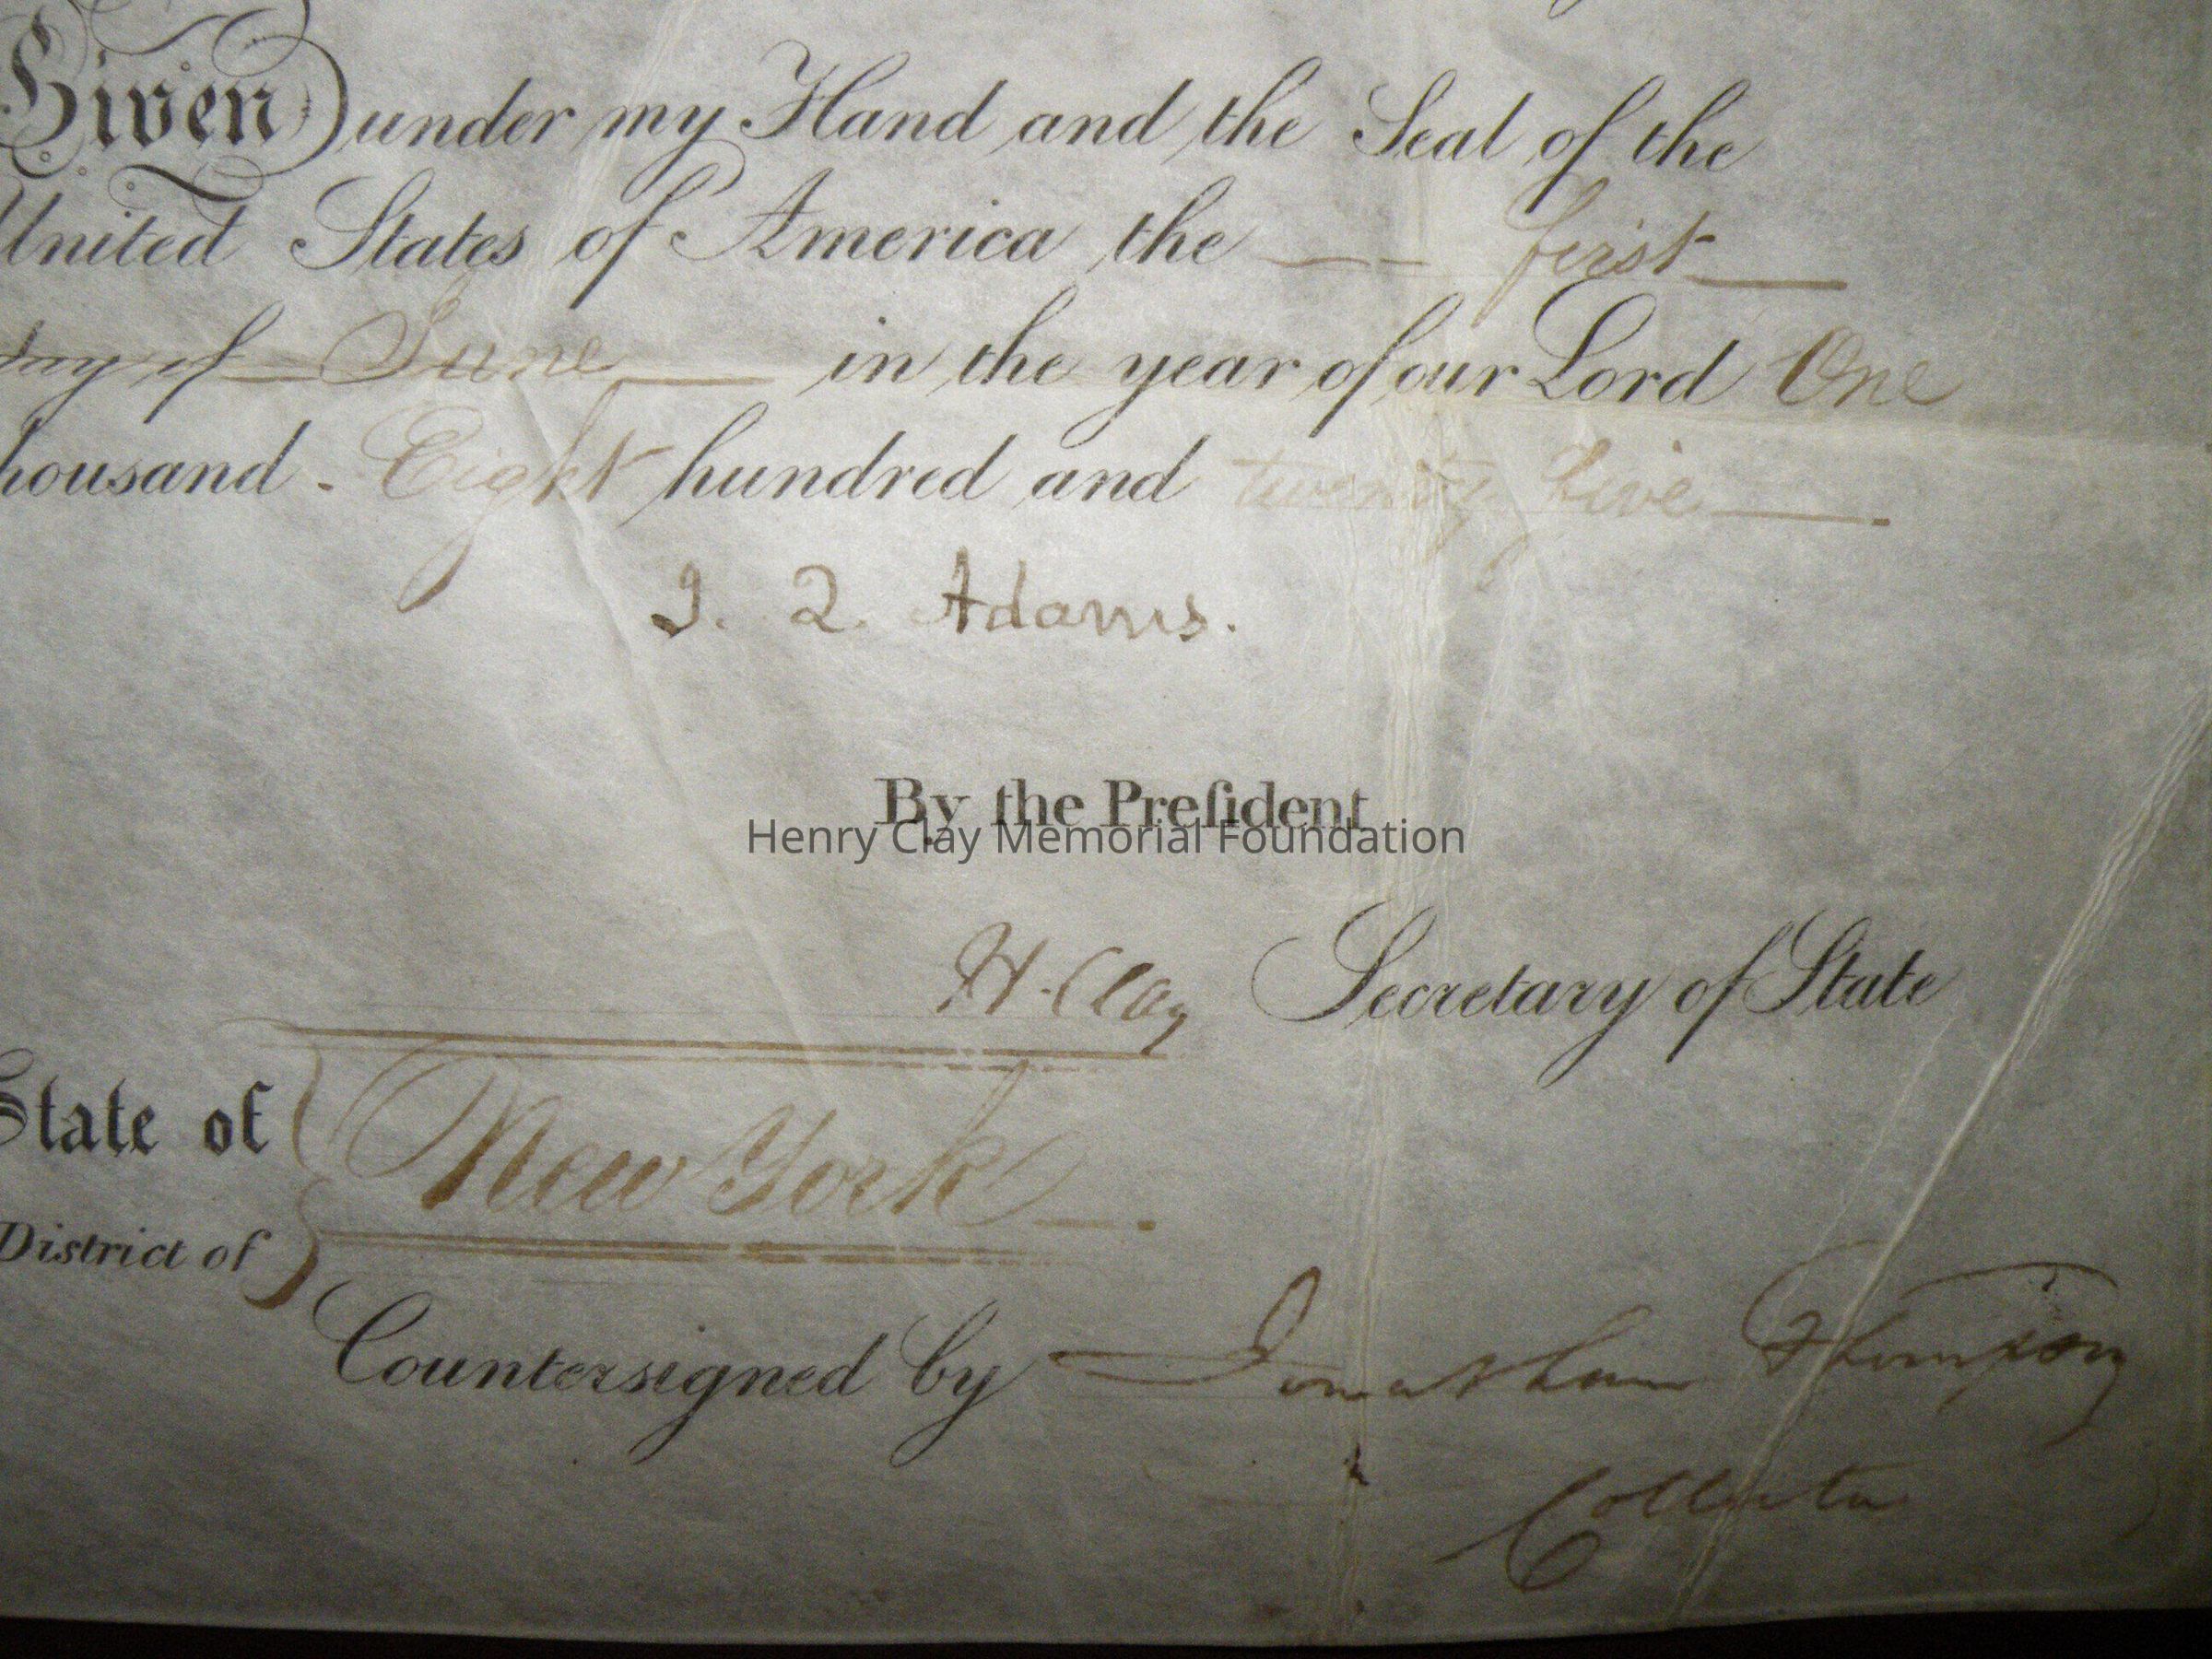 Given under my Hand and the Seal of the
United States of America the first
day of June in the year of our Lord One
housand Eight hundred and twenty five
J. Q. Adams.
By the Preſident
Henry Clay Memorial Foundation
H. Clay Secretary of State
State of
New York
District of
Countersigned by Jonathan Thompson
Collector